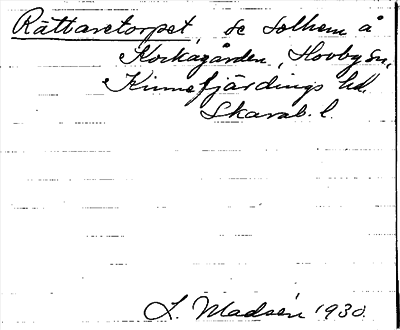 Rättaretorpet, se Solhem å
Kockagården, Hovby sn,
Kinnefjärdings hd.
Skarab. l.
L. Madsén 1930.